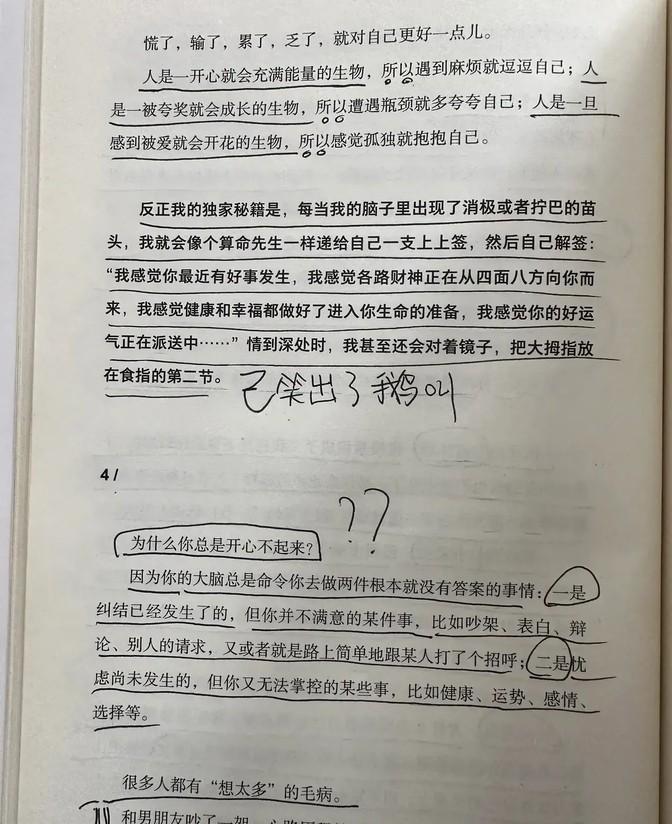 慌了，输了，累了，乏了，就对自己更好一点儿。
人是一开心就会充满能量的生物，所以遇到麻烦就逗逗自己；人
是一被夸奖就会成长的生物，所以遭遇瓶颈就多夸夸自己；人是一旦
感到被爱就会开花的生物，所以感觉孤独就抱抱自己。
反正我的独家秘籍是，每当我的脑子里出现了消极或者拧巴的苗
头，我就会像个算命先生一样递给自己一支上上签，然后自己解签：
“我感觉你最近有好事发生，我感觉各路财神正在从四面八方向你而
来，我感觉健康和幸福都做好了进入你生命的准备，我感觉你的好运
气正在派送中……”情到深处时，我甚至还会对着镜子，把大拇指放
在食指的第二节。
已笑出了鹅叫
4/
??
为什么你总是开心不起来？
因为你的大脑总是命令你去做两件根本就没有答案的事情：一是
纠结已经发生了的，但你并不满意的某件事，比如吵架、表白、辩
论、别人的请求，又或者就是路上简单地跟某人打了个招呼；二是忧
虑尚未发生的，但你又无法掌控的某些事，比如健康、运势、感情、
选择等。
很多人都有“想太多”的毛病。
和男朋友吵了一架，心路历程